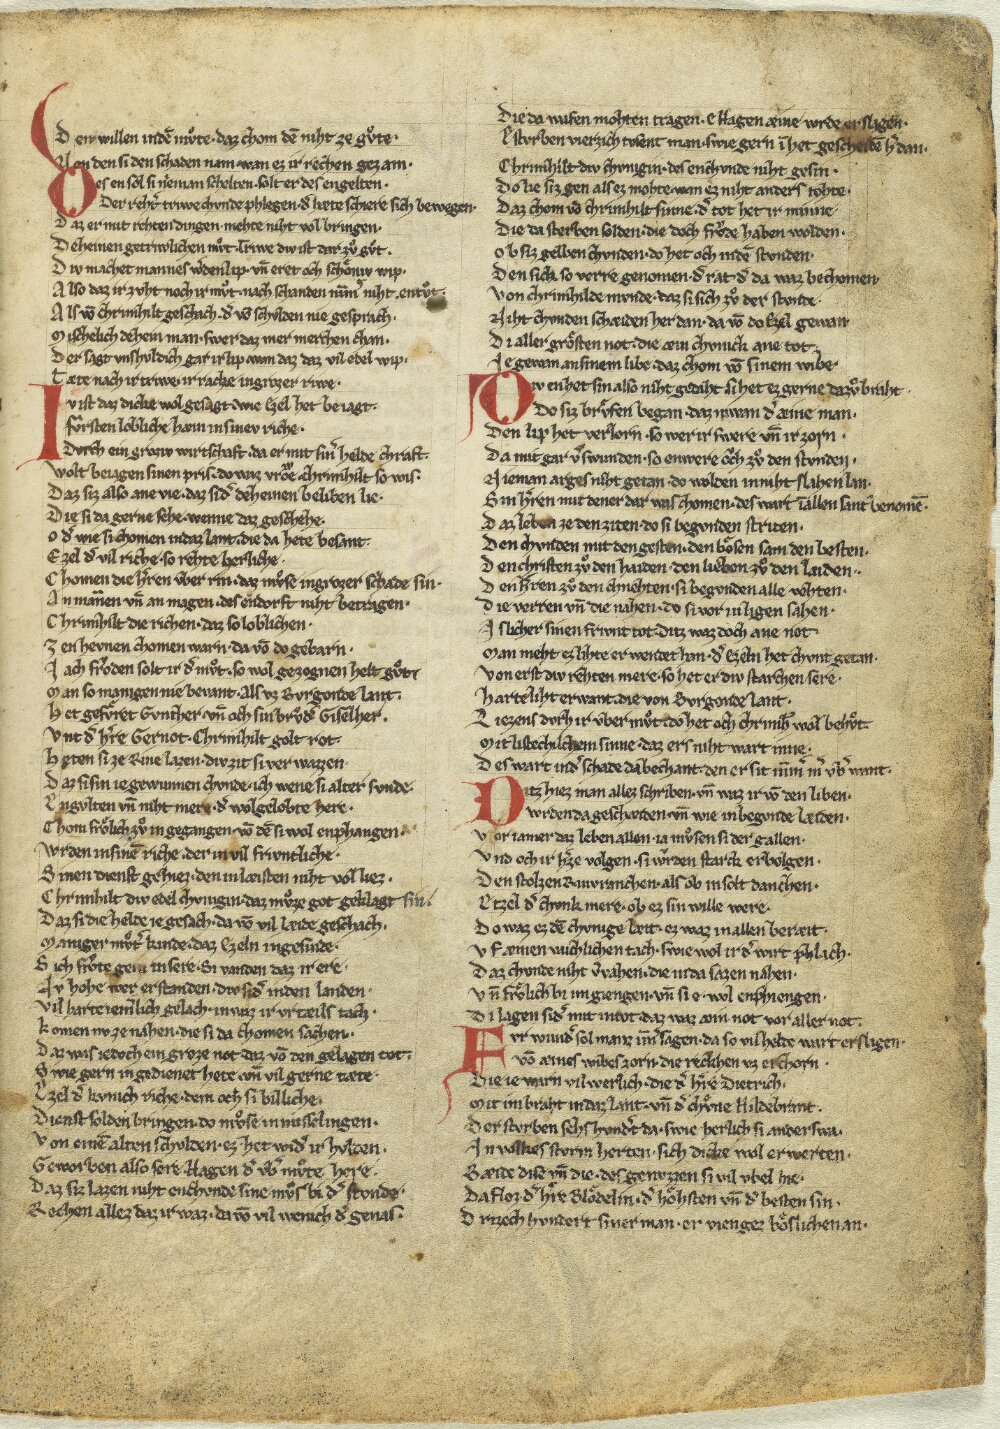 Den willen in dē mv̊te. daz chom dē niht ze gv̊te.
Von den si den schaden nam. wan ez ir rechen gezam.
Des en sol si nieman schelten. solt er des engelten.
Der rehť triwe chvnde phlegen. ď hæte schiere sich bewegen.
Daz er mit rehten dingen. mehte niht vol bringen.
Deheinen getriwlichen mv̊t. triwe div ist dar zv̊ gv̊t.
Div machet mannes werden lip. vn̄ eret och schoͤniv wip.
Also daz ir zvht noch ir mv̊t. nach schanden nimmer niht entv̊t.
Als vō chrimhilt geschach. ď vō schvlden nie gesprach.
Misselich dehein man. swer daz mer merchen chan.
Der sagt vnschvldich gar ir lip. wan daz daz vil edel wip.
Tæte nach ir triwe. ir rache in grozer riwe.
Iv ist daz dicke wol gesagt. wie Ezel het beiagt.
Fv̊rsten lobliche. hæim in sinev riche.
Dvrch ein groziv wirtschaft. da er mit sinr helde chraft.
Wolt beiagen sinen pris. do waz vrov̊ chrimhilt so wis.
Daz siz also ane vie. daz sid deheinen beliben lie.
Die si da gerne sehe. wenne daz geschehe.
Oď wie si chomen in daz lant. die da hete besant.
Ezel ď vil riche. so rehte herliche.
Chomen die h̄ren vber rin. daz mv̊se in grozer schade sin.
An mannen vn̄ an magen. des endorft niht betragen.
Chrimhilt die richen. daz so loblichen.
Zen hevnen chomen warn. da vō do gebarn.
Nach froͤden solt ir ď mv̊t. so wol gezognen helt gv̊t
Man so manigen nie bevant. Als vz Bvrgonde lant.
Het gefv̊ret Gvnther. vn̄ och sin brv̊ď Giselher.
Vnt ď h̄re Gernot. Chrimhilt golt rot.
Heten si ze Rine lazen. div zit si verwazen.
Daz si sin ie gewunnen chvnde. ich wene si alter svnde.
Engvlten vn̄ niht mere. ď wol gelobte here.
Chom froͤlich zv̊ in gegangen. vō dē si wol enphangen.
Wrden in sinē riche. der in vil frivntliche.
Sinen dienst gehiez. den in læisten niht vol liez.
Chrimhilt div edel chvnigin. daz mv̊ze got geklagt sin.
Daz si die helde ie gesach. da vō vil læide geschach.
Maniger mv̊ť kinde. daz Ezeln ingesinde.
Sich froͤte gein in sere. Si wanden daz ir ere.
Nv hohe wer erstanden. div sid in den landen.
Vil harte iemlich gelach. in waz ir vrteils tach.
Komen nv ze nahen. die si da chomen sachen.
Daz was iedoch ein groze not. daz vō den gelagen tot.
Swie gern in gedienet hete. vn̄ vil gerne tæte.
Ezel ď kvnich riche. dem och si billiche.
Dienst solden bringen. do mv̊se in misselingen.
Von einē alten schvlden. ez het wid ir hvlden.
Geworben also sere. Hagen ď vb̄ mv̊te here.
Daz siz lazen niht enchvnde. sine mv̊s bi ď stvnde.
Rechen allez daz ir waz. da vō vil wenich ď genas.
Die da wafen mohten tragen. e Hagen æine wrde erslagen.
E storben vierzich tvsent man. swie gern ī het gescheidē h̄ dan.
Chrimhilt div chvnigin. des enchvnde niht gesin.
Do lie siz gen als ez mohte. wan ez niht anders tohte.
Daz chom vō chrimhilt sinne. ď tot het ir minne
Die da sterben solden. die doch froͤde haben wolden.
Ob siz gelben chvnden. do het och in dē stvnden.
Den sich so verre genomen. ď rat ď da waz bechomen.
Von chrimhilde mvnde. daz si sich zv̊ der stvnde.
Niht chvnden schæiden her dan. da vō do Ezel gewan
Di aller groͤsten not. die æin chvnich ane tot.
Ie gewan an sinem libe. daz chom vō sinem wibe.
Div en het sin also niht gedaht. si het ez gerne dar zv̊ braht.
Do siz brv̊fen began. daz niwan ď æine man.
Den lip het verlorn. so wer ir swere vn̄ ir zorn.
Da mit gar v̄swunden. so enwere oͮch zv̊ den stvnden.
Nieman arges niht getan. do wolden in niht slahen lan.
Sin h̄ren mit dener dar was chomen. des wart ī allen sant benomē.
Daz leben ze den ziten. do si begvnden striten.
Den chvnden mit den gesten. den boͤsen sam den besten.
Den christen zv̊ den haiden. den lieben zv̊ den læiden.
Den h̄ren zv̊ den chnehten. si begvnden alle vehten.
Die verren vn̄ die nahen. do si vor in ligen sahen.
Islicher sinen frivnt tot. ditz waz doch ane not
Man meht ez lihte erwendet han. ď Ezeln het chvnt getan.
Von erst div rehten mere. so het er div starchen sere.
Harte liht erwant. die von Bvrgonde lant.
Liezens dvrch ir vbermv̊t. do het och chrimh̄ wol behv̊t.
Mit listechlichem sinne. daz ers niht wart inne.
Des wart ind schade da bechant. den er sit nim̄ m̄ vb̄ want.
Ditz hiez man allez schriben. vn̄ waz ir vō den liben.
Wrden da geschæiden. vn̄ wie in begonde læiden.
Vor iamer daz leben allen. ia mv̊sen si der gallen.
Vnd och ir h̄ze volgen. si wrden starch erbolgen.
Den stolzen Rinvranchen. als ob in solt danchen.
Etzel ď chvnk mere. ob ez sin wille were.
Do waz ez dē chvnige læit. ez waz in allen beræit.
Vf æinen vaichlichen tach. swie wol ir ď wirt phlach.
Daz chvnde niht v̄vahen. die in da sazen nahen.
Vn̄ froͤlich bi im giengen. vn̄ si e wol enphiengen.
Di lagen sid mit in tot. daz waz æin not vor aller not.
Fvr wund sol man im̄ sagen. da so vil helde wart erslagen.
Vō æines wibes zorn. die rechhen vz erchorn.
Die ie warn vil werlich. die ď h̄re Dietrich.
Mit im braht in daz lant. vn̄ ď chv̊ne Hildebrant.
Der storben sehs hvndt da. swie herlich si anderswa.
In volkes sturm herten. sich dicke wol erwerten.
Bæide dise vn̄ die. des genvzzen si vil vbel hie.
Da floz ď h̄re Bloͤdelin. ď hoͤhsten vn̄ ď besten sin.
Drizech hvndert siner man. er vienge ez boͤslichen an.